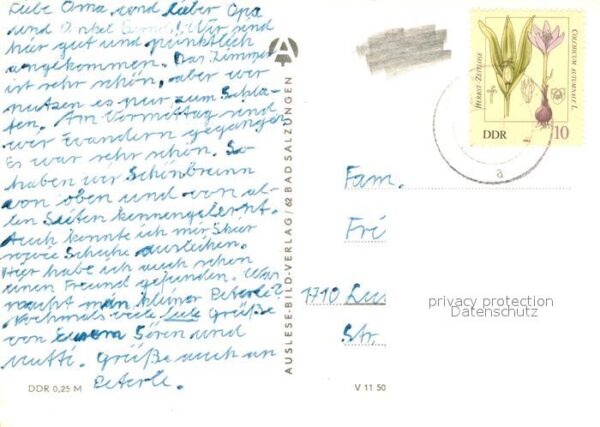 Liebe Oma, und lieber Opa
und Onkel Bernd! Wir sind
hier gut und pünktlich
angekommen. Das Zimmer
ist sehr schön, aber wir
nutzen es nur zum Schla-
fen. Am Vormittag sind
wir Wandern gegangen
Es war sehr schön. So
haben wir Schönbrunn
von oben und von al-
len Seiten kennengelernt.
Auch konnte ich mir Skier
sowie Schuhe ausleihen.
Hier habe ich auch schon
einen Freund gefunden. Was
macht mein kleiner Peterle?
Nochmals viele liebe Grüße
von eurem Sören und
Mutti. Grüße auch an
Peterle.
DDR 0,25 M
AUSLESE-BILD-VERLAG/62 BAD SALZUNGEN
V 11 50
HERBST-ZEITLOSE
COLCHICUM AUTUMNALE L.
DDR
10
a
Fam.
Fri
1710 Luc
Str.
privacy protection
Datenschutz